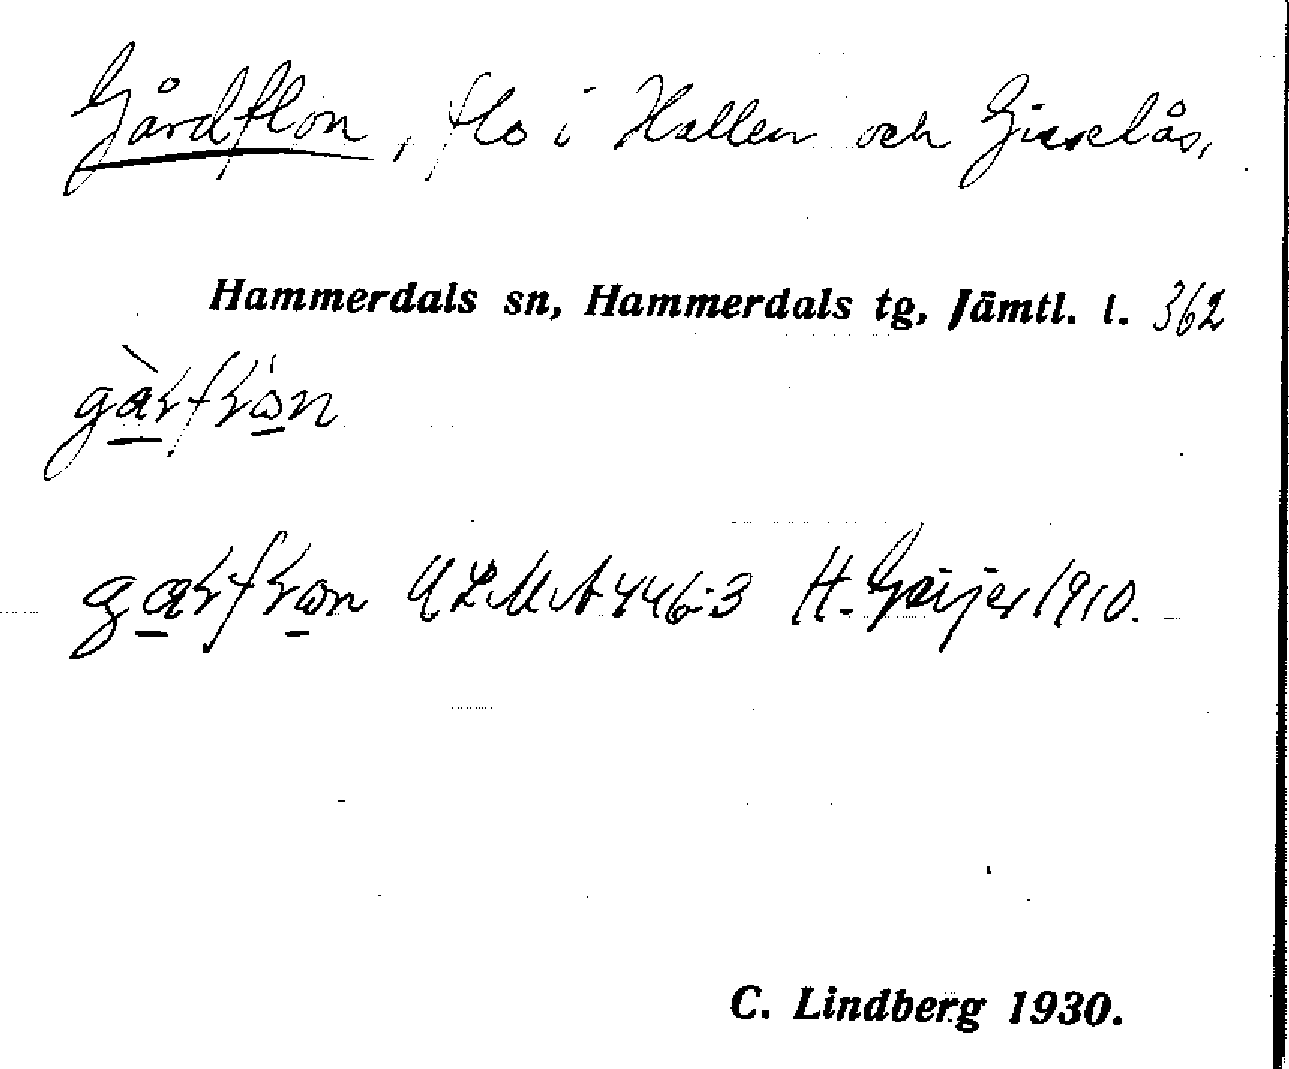 Gårdflon, flo i Hallen och Gisselås,
Hammerdals sn, Hammerdals tg, Jämtl. l. 362
ULMA 446:3 H. Geijer 1910.
C. Lindberg 1930.